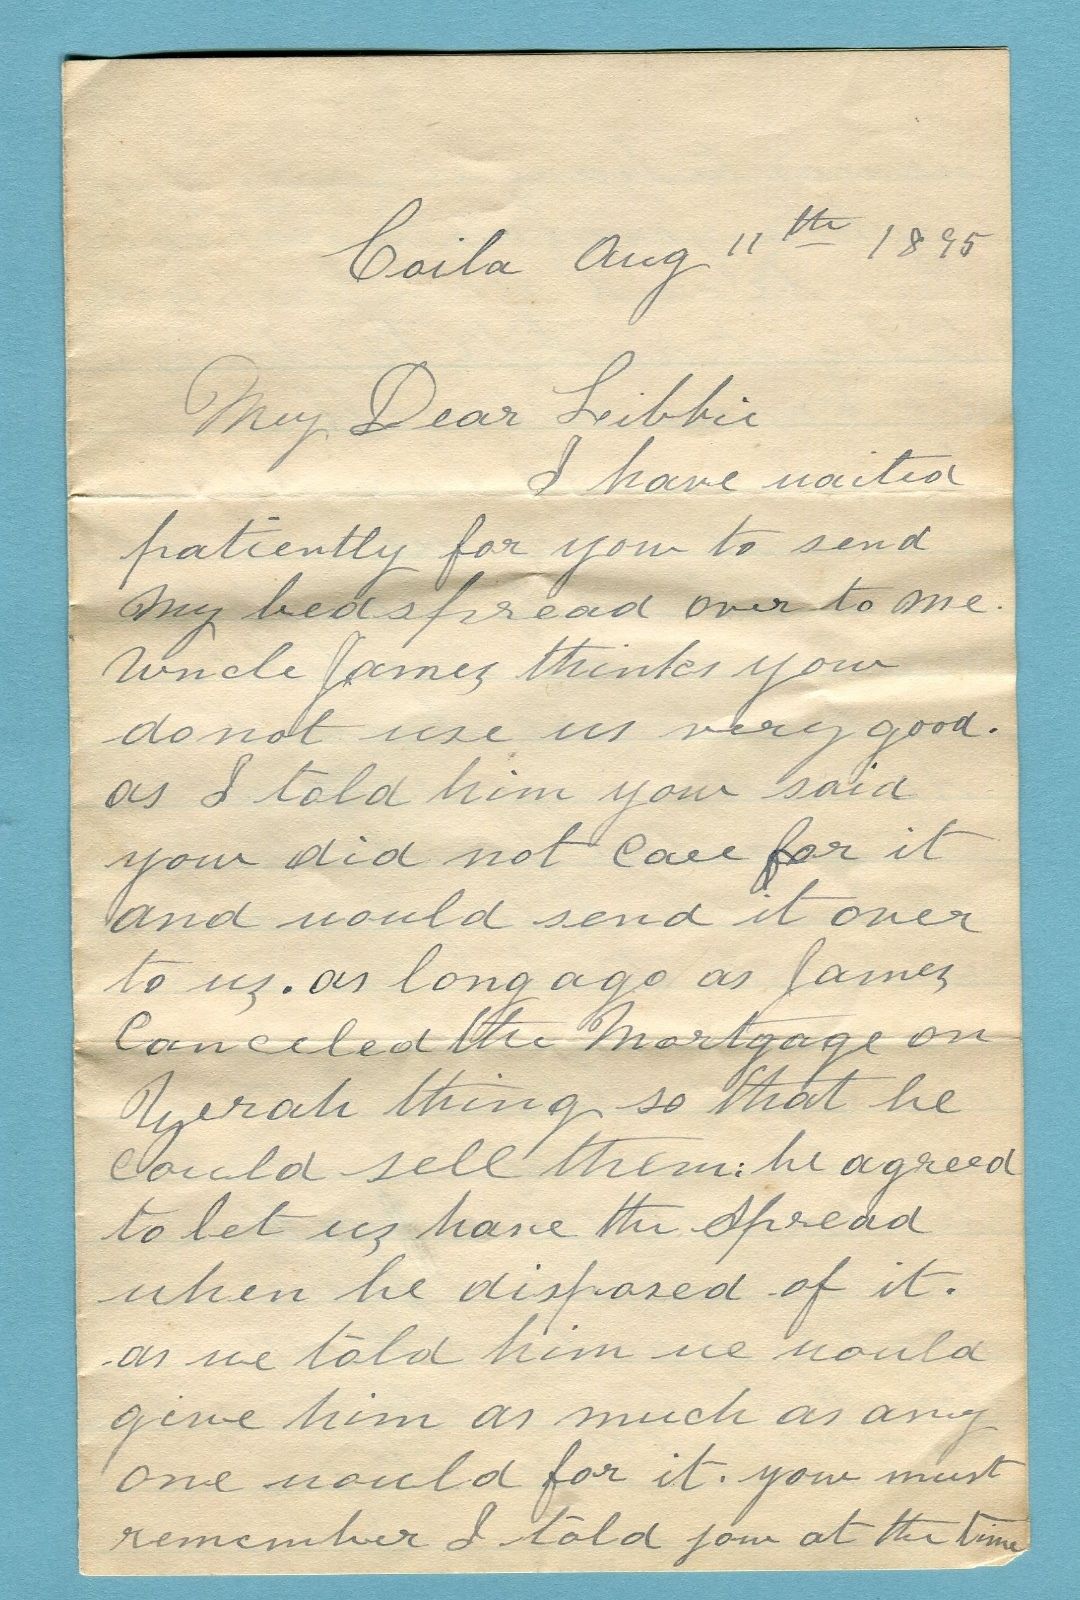 Coila Aug 11th 1895
My Dear Libbie
I have waited
patiently for you to send
my bedspread over to me.
Uncle James thinks you
do not use us very good.
as I told him you said
you did not Care for it
and would send it over
to us. as long ago as James
Canceled the Mortgage on
Zerah thing so that he
Could sell them: he agreed
to let us have the Spread
when he disposed of it.
as we told him we would
give him as much as any
one would for it. you must
remember I told you at the time